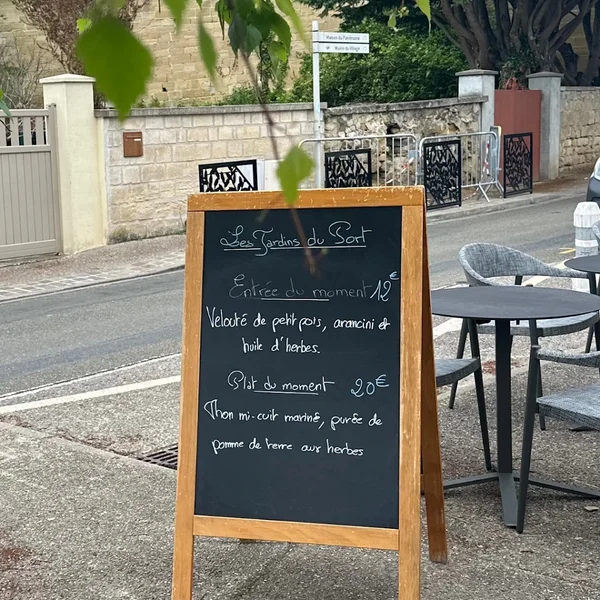 Maison du Patrimoine
Musée du Village
Les Jardins du Port
Entrée du moment 12€
Velouté de petit pois, arancini et
huile d'herbes.
Plat du moment 20€
Thon mi-cuit mariné, purée de
pomme de terre aux herbes